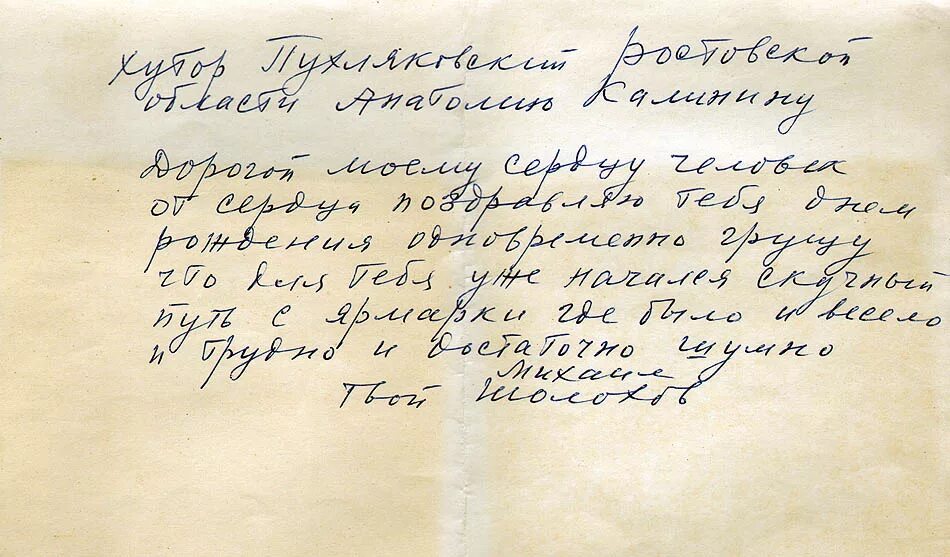 Хутор Пухляковский Ростовской
области Анатолию Калинину
Дорогой моему сердцу человек
от сердца поздравляю тебя днем
рождения одновременно грущу
что для тебя уже начался скучный
путь с ярмарки где было и весело
и трудно и достаточно шумно
Михаил
Твой Шолохов